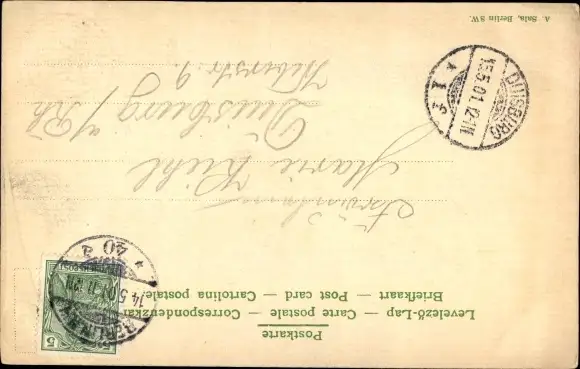 Postkarte
Levelező-Lap — Carte postale — Correspondenzkarte
Briefkaart — Post card — Cartolina postale
5
40 a
14.5.01
Fräulein
Marie Kiehl
Duisburg a/Rh
DUISBURG
15.5.01.12-1N
* 1 f
A. Sala, Berlin SW.